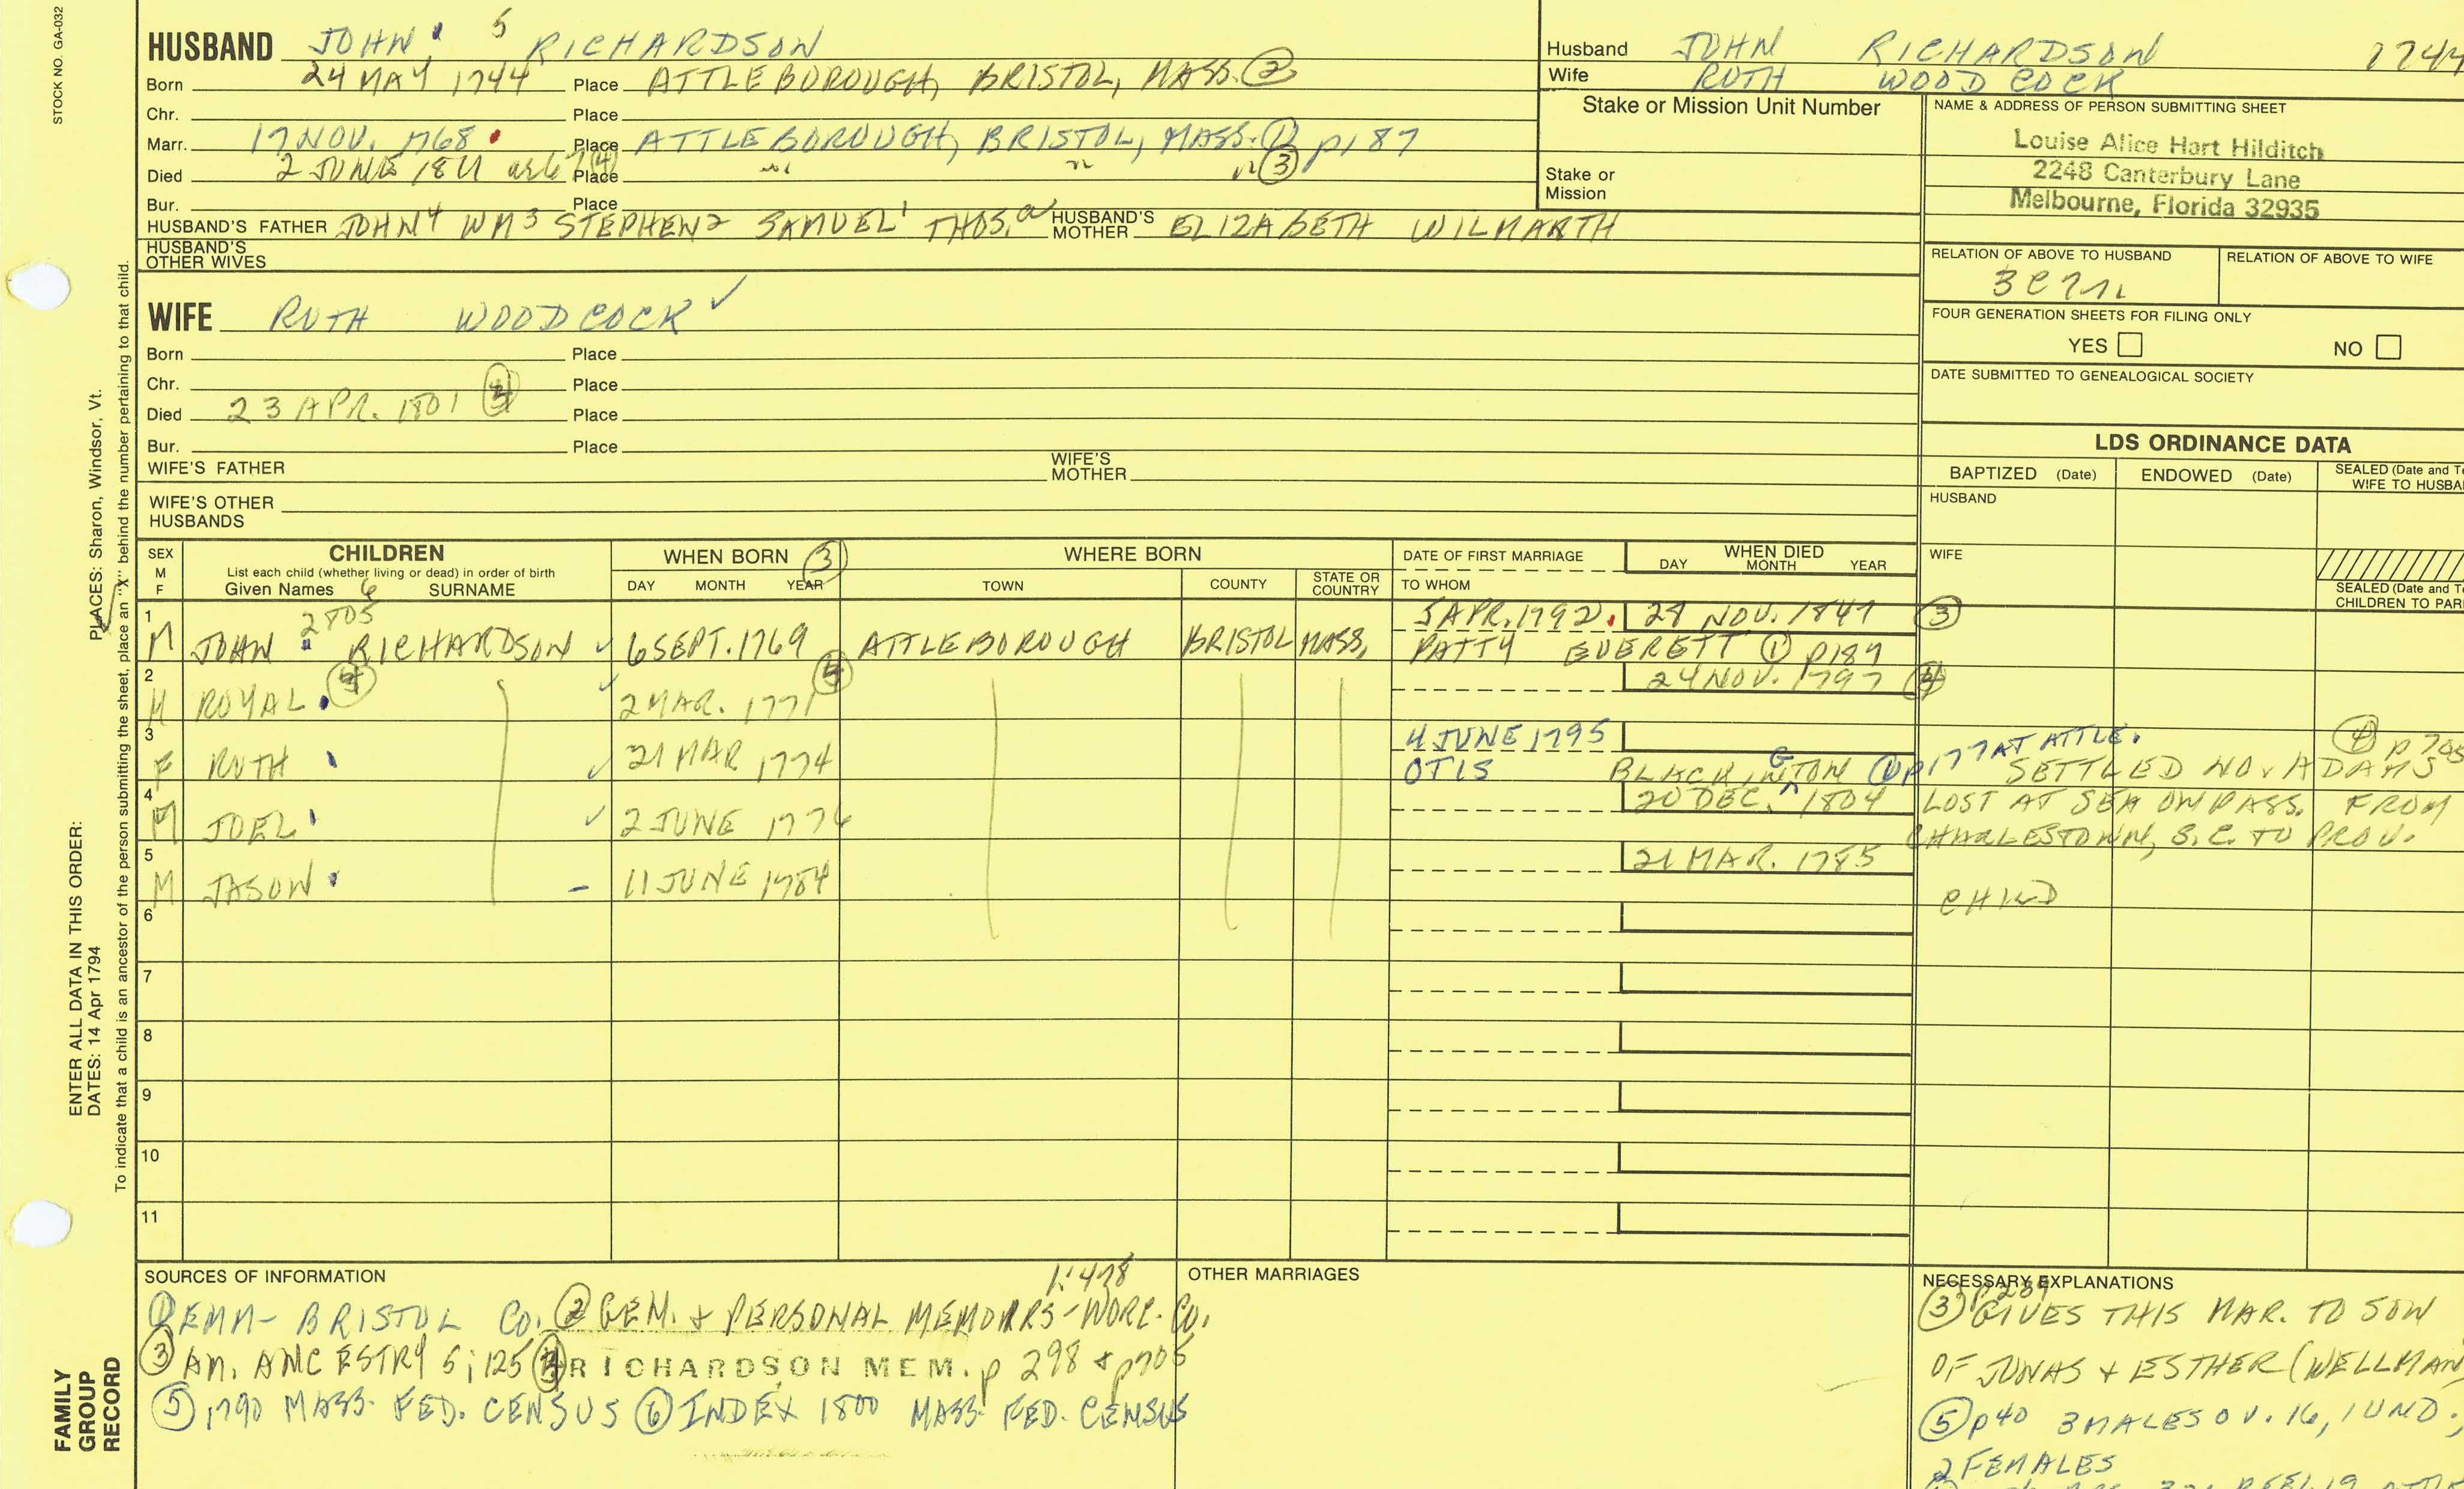 STOCK NO. GA-032
HUSBAND JOHN 5 RICHARDSON
Born 24 MAY 1744 Place ATTLEBOROUGH, BRISTOL, MASS. ②
Chr. Place
Marr. 17 NOV. 1768 Place ATTLEBOROUGH, BRISTOL, MASS. ① p187
Died 2 JUNE 1811 ae 67 (4) Place " " " ③
Bur. Place
HUSBAND'S FATHER JOHN4 WM3 STEPHEN2 SAMUEL1 THOS.a HUSBAND'S MOTHER ELIZABETH WILMARTH
HUSBAND'S OTHER WIVES
WIFE RUTH WOODCOCK ✓
Born Place
Chr. Place
Died 23 APR. 1801 Place
Bur. Place
WIFE'S FATHER WIFE'S MOTHER
WIFE'S OTHER HUSBANDS
Husband JOHN RICHARDSON 1744
Wife RUTH WOODCOCK
Stake or Mission Unit Number
Stake or Mission
NAME & ADDRESS OF PERSON SUBMITTING SHEET
Louise Alice Hart Hilditch
2248 Canterbury Lane
Melbourne, Florida 32935
RELATION OF ABOVE TO HUSBAND RELATION OF ABOVE TO WIFE
FOUR GENERATION SHEETS FOR FILING ONLY
YES NO
DATE SUBMITTED TO GENEALOGICAL SOCIETY
LDS ORDINANCE DATA
BAPTIZED (Date) ENDOWED (Date) SEALED (Date and Te
WIFE TO HUSBA
HUSBAND
WIFE
SEALED (Date and Te
CHILDREN TO PAR
SEX M F CHILDREN WHEN BORN ③ WHERE BORN DATE OF FIRST MARRIAGE WHEN DIED
List each child (whether living or dead) in order of birth
Given Names 6 SURNAME DAY MONTH YEAR TOWN COUNTY STATE OR COUNTRY TO WHOM DAY MONTH YEAR
1 2805 5 APR. 1792. NOV. 1847 ③
M JOHN RICHARDSON ✓ 6 SEPT. 1769 ATTLEBOROUGH BRISTOL MASS. PATTY EVERETT ①
2 24 NOV. 1797
M ROYAL ✓ 2 MAR. 1771
3 4 JUNE 1795
F RUTH ✓ 21 MAR 1774 OTIS BLACKINGTON ① p177 AT ATTLE.
SETTLED NO. ADAMS
4 20 DEC. 1804 LOST AT SEA ON PASS. FROM
M JOEL ✓ 2 JUNE 1776 CHARLESTOWN, S.C. TO PROV.
5 21 MAR. 1785
M JASON – 11 JUNE 1784 CHILD
6
7
8
9
10
11
PLACES: Sharon, Windsor, Vt.
To indicate that a child is an ancestor of the person submitting the sheet, place an "X" behind the number pertaining to that child.
ENTER ALL DATA IN THIS ORDER:
DATES: 14 Apr 1794
FAMILY GROUP RECORD
SOURCES OF INFORMATION 1:478
① EMM- BRISTOL CO. ② GEN. & PERSONAL MEMOIRS-WORC. CO.
③ AM. ANCESTRY 5; 125 RICHARDSON MEM. p 298 & p705
⑤ 1790 MASS. FED. CENSUS ⑥ INDEX 1800 MASS. FED. CENSUS
OTHER MARRIAGES
NECESSARY EXPLANATIONS
③ GIVES THIS MAR. TO SON
OF JONAS & ESTHER (WELLMAN
⑤ p40 3 MALES OV. 16, 1 UND.,
2 FEMALES